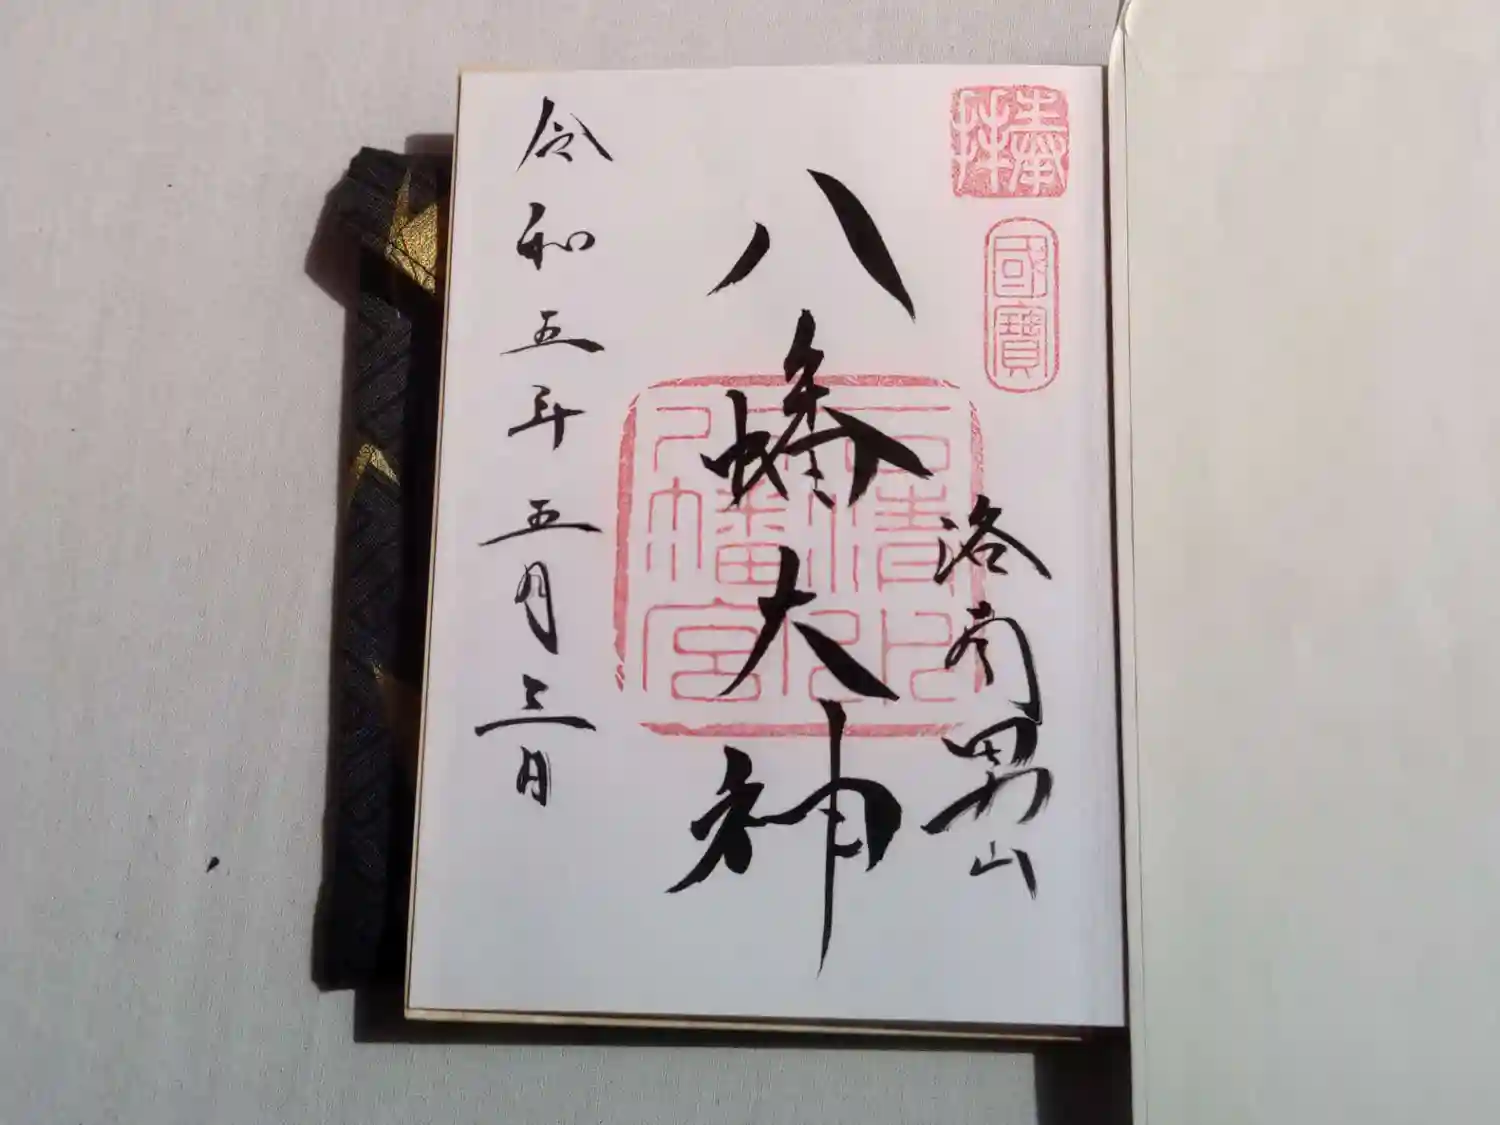 奉拝
國寶
洛南男山
八幡大神
石清水
八幡宮
令和五年五月三日